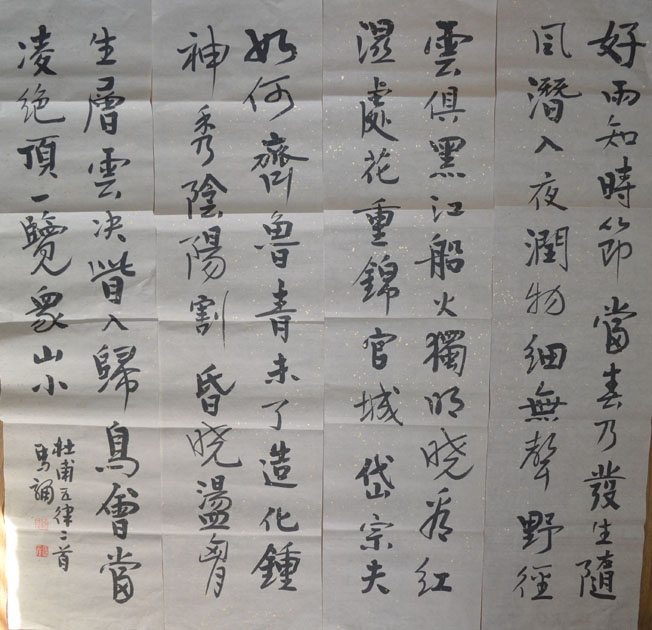 好雨知時節當春乃發生隨
風潛入夜潤物細無聲野徑
雲俱黑江船火獨明曉看紅
濕處花重錦官城岱宗夫
如何齊魯青未了造化鍾
神秀陰陽割昏曉盪胸
生層雲决眥入歸鳥會當
凌绝頂一覽衆山小
杜甫五律二首